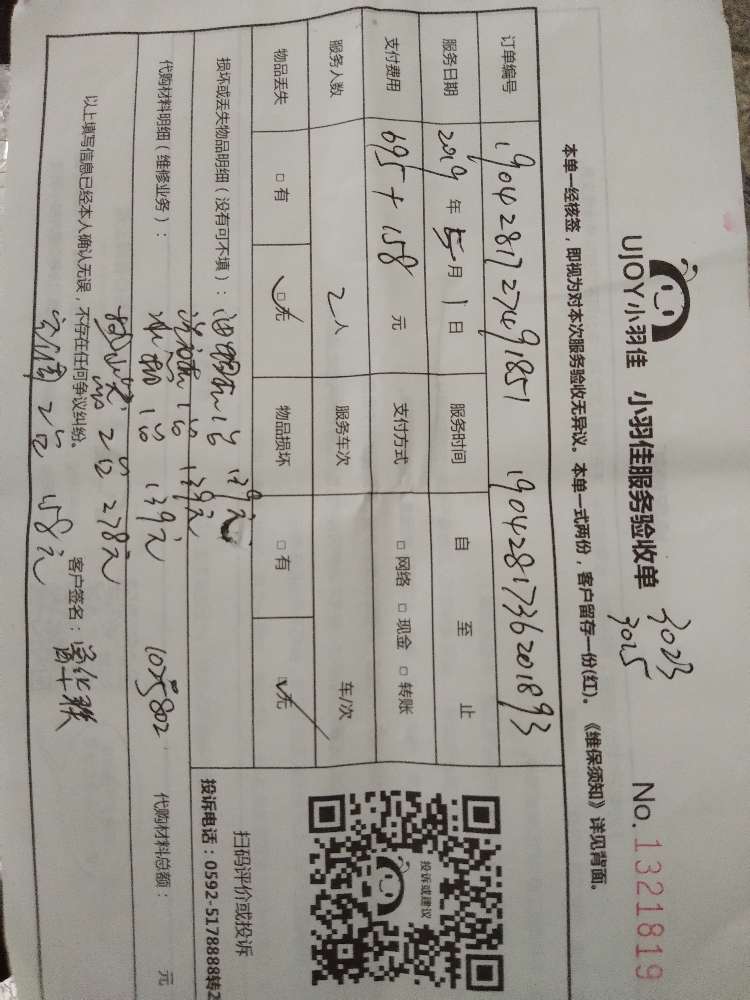 3023
3025
UJOY小羽佳 小羽佳服务验收单 No.1321819
本单一经核签，即视为对本次服务验收无异议。本单一式两份，客户留存一份(红)。《维保须知》详见背面。
订单编号 1904281727491851 1904281736201893
服务日期 2019年 5月 1日 服务时间 自 至 止
支付费用 695+158 元 支付方式 □网络 □现金 □转账
服务人数 2人 服务车次 车/次
物品丢失 □有 □无 物品损坏 □有 □无
损坏或丢失物品明细（没有可不填）： 油烟机1台 139元
洗衣机1台 139元
代购材料明细（维修业务）： 冰箱1台 139元 1025802 代购材料总额： 元
2台 278元
以上填写信息已经本人确认无误，不存在任何争议纠纷。 客户签名：
2台 158元
投诉或建议
扫码评价或投诉
投诉电话：0592-5178888转2